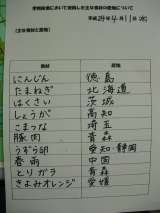 学校給食において使用した主な食材の産地について
平成24年4月11日(水)
(主な食材と産地)
食材 産地
にんじん 徳島
たまねぎ 北海道
はくさい 茨城
しょうが 高知
こまつな 埼玉
豚肉 青森
うずら卵 愛知・静岡
春雨 中国
とりガラ 青森
きよみオレンジ 愛媛